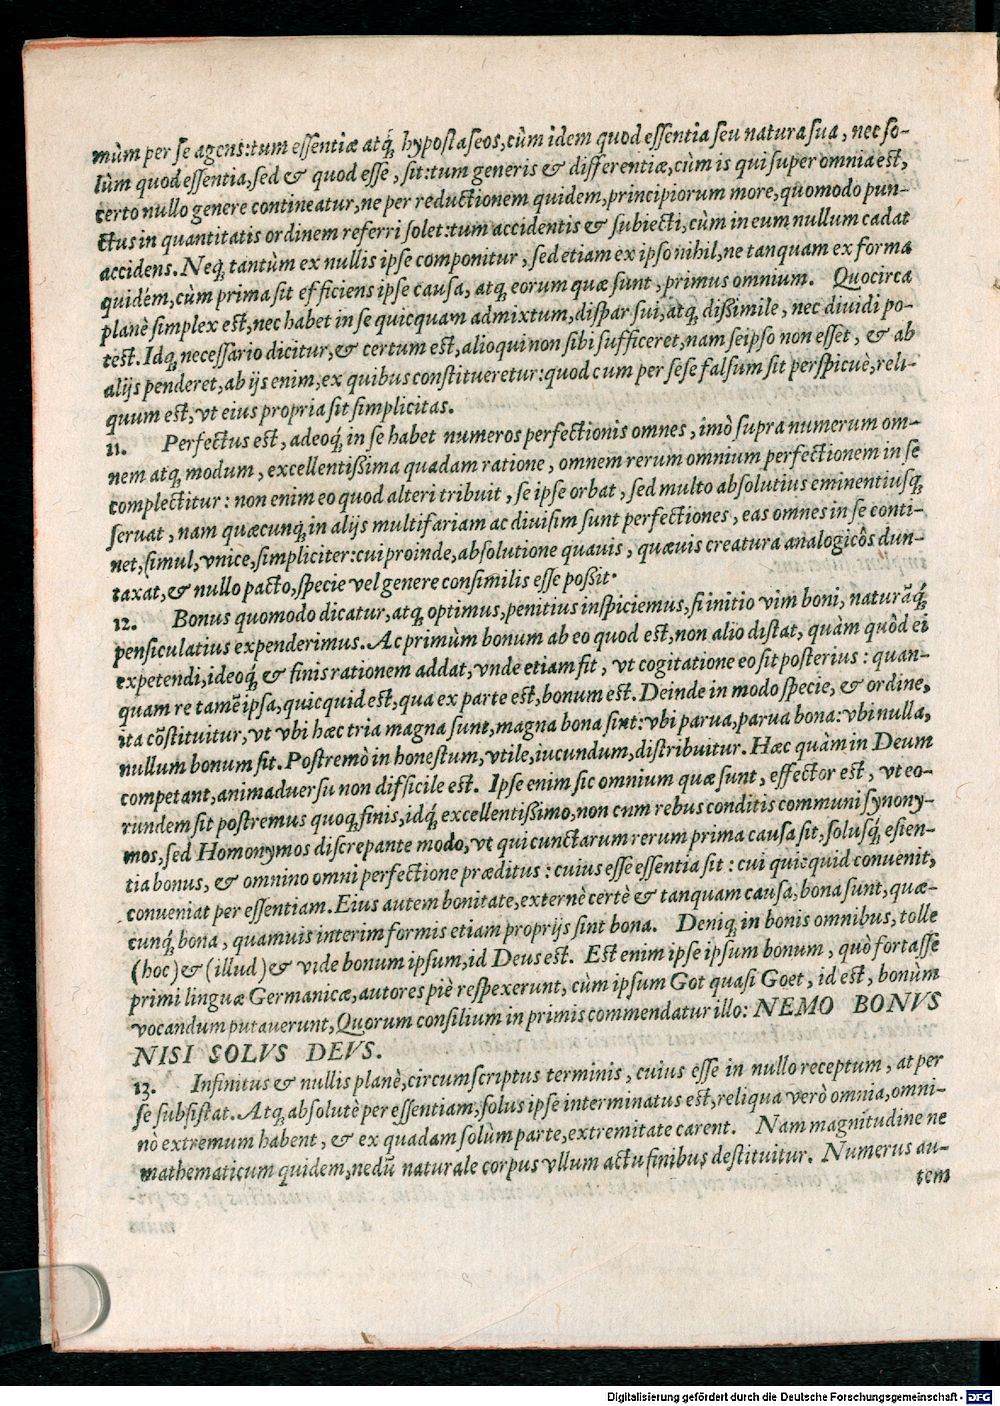 mùm per se agens:tum essentiæ atq́; hypostaseos,cùm idem quod essentia seu natura sua, nec so-
lùm quod essentia,sed & quod esse, sit:tum generis & differentiæ,cùm is qui super omnia est,
certo nullo genere contineatur,ne per reductionem quidem,principiorum more,quomodo pun-
ctus in quantitatis ordinem referri solet:tum accidentis & subiecti,cùm in eum nullum cadat
accidens. Neq; tantùm ex nullis ipse componitur, sed etiam ex ipso nihil,ne tanquam ex forma
quidem,cùm prima sit efficiens ipse causa, atq; eorum quæ sunt, primus omnium. Quocirca
planè simplex est,nec habet in se quicquam admixtum,dispar sui,atq; dißimile, nec diuidi po-
test. Idq; necessario dicitur,& certum est,alioqui non sibi sufficeret,nam seipso non esset, & ab
alijs penderet,ab ijs enim,ex quibus constitueretur:quod cum per sese falsum sit perspicuè,reli-
quum est,vt eius propria sit simplicitas.
11. Perfectus est, adeoq́; in se habet numeros perfectionis omnes, imò supra numerum om-
nem atq; modum, excellentißima quadam ratione, omnem rerum omnium perfectionem in se
complectitur: non enim eo quod alteri tribuit, se ipse orbat, sed multo absolutius eminentiusq;
seruat, nam quæcunq; in alijs multifariam ac diuisim sunt perfectiones, eas omnes in se conti-
net, simul, vnice, simpliciter:cui proinde,absolutione quauis, quæuis creatura analogicôs dun-
taxat,& nullo pacto,specie vel genere consimilis esse poßit.
12. Bonus quomodo dicatur,atq; optimus,penitius inspiciemus,si initio vim boni, naturāq́;
pensiculatius expenderimus. Ac primùm bonum ab eo quod est,non alio distat, quàm quòd ei
expetendi,ideoq́; & finis rationem addat,vnde etiam fit, vt cogitatione eo sit posterius: quan-
quam re tamē ipsa,quicquid est,qua ex parte est,bonum est. Deinde in modo specie, & ordine,
ita cōstituitur, vt vbi hæc tria magna sunt,magna bona sint:vbi parua,parua bona:vbi nulla,
nullum bonum sit. Postremò in honestum,vtile,iucundum,distribuitur. Hæc quàm in Deum
competant,animaduersu non difficile est. Ipse enim sic omnium quæ sunt, effector est, vt eo-
rundem sit postremus quoq; finis,idq́; excellentißimo,non cum rebus conditis communi synony-
mos, sed Homonymos discrepante modo,vt qui cunctarum rerum prima causa sit, solusq́; essen-
tia bonus, & omnino omni perfectione præditus: cuius esse essentia sit: cui quicquid conuenit,
conueniat per essentiam. Eius autem bonitate,externè certè & tanquam causa, bona sunt, quæ-
cunq́; bona, quamuis interim formis etiam proprijs sint bona. Deniq; in bonis omnibus, tolle
(hoc) & (illud) & vide bonum ipsum,id Deus est. Est enim ipse ipsum bonum, quò fortasse
primi linguæ Germanicæ,autores piè respexerunt, cùm ipsum Got quasi Goet, id est, bonùm
vocandum putauerunt, Quorum consilium in primis commendatur illo: NEMO BONVS
NISI SOLVS DEVS.
13. Infinitus & nullis planè,circumscriptus terminis, cuius esse in nullo receptum, at per
se subsistat. Atq; absolutè per essentiam, solus ipse interminatus est,reliqua verò omnia,omni-
nò extremum habent, & ex quadam solùm parte,extremitate carent. Nam magnitudine ne
mathematicum quidem,nedū naturale corpus vllum actu finibus destituitur. Numerus au-
tem
Digitalisierung gefördert durch die Deutsche Forschungsgemeinschaft - DFG